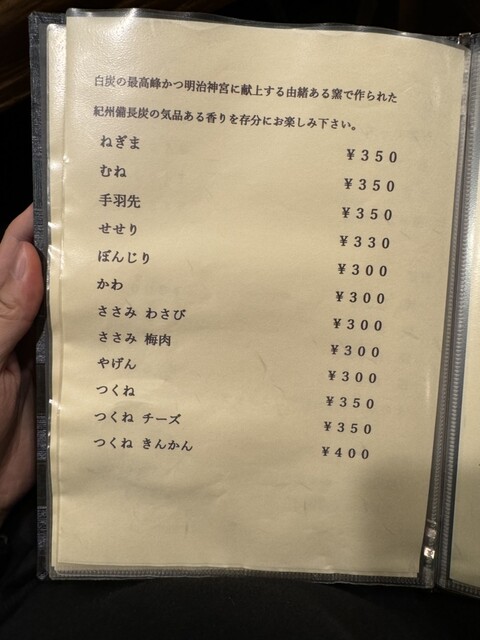 白炭の最高峰かつ明治神宮に献上する由緒ある窯で作られた
紀州備長炭の気品ある香りを存分にお楽しみ下さい。
ねぎま ¥350
むね ¥350
手羽先 ¥350
せせり ¥330
ぼんじり ¥300
かわ ¥300
ささみ わさび ¥300
ささみ 梅肉 ¥300
やげん ¥300
つくね ¥350
つくね チーズ ¥350
つくね きんかん ¥400